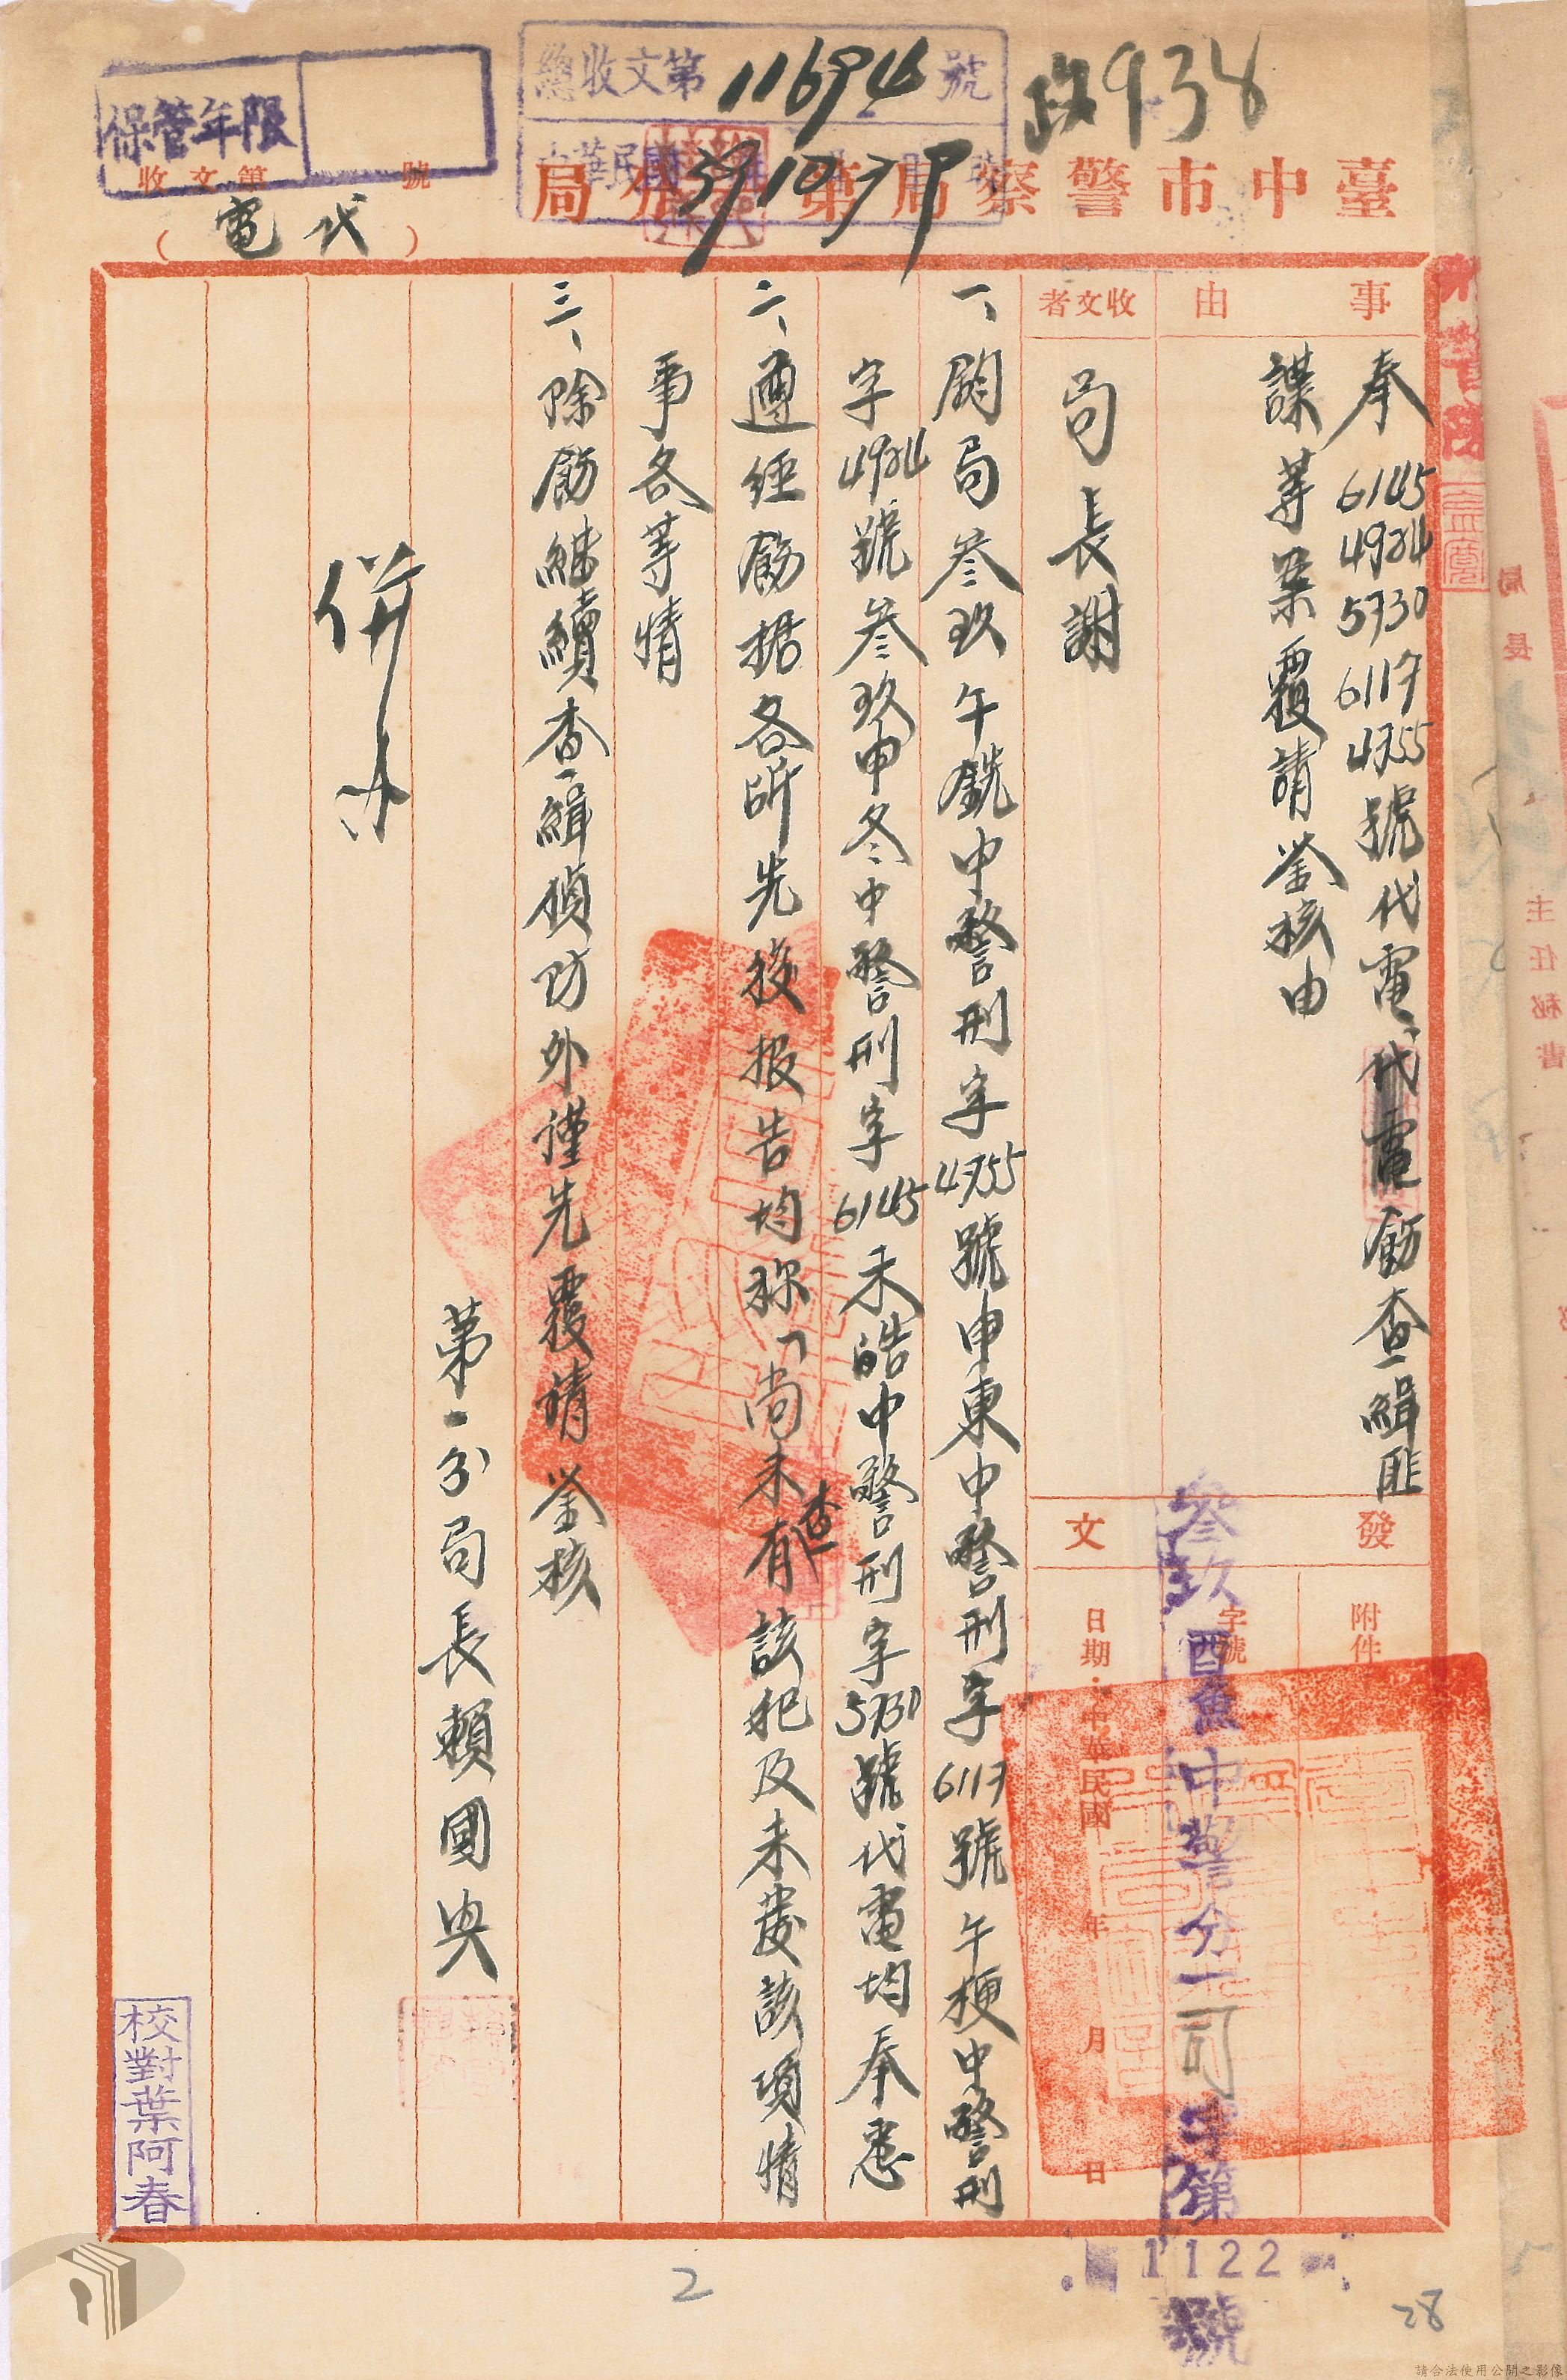 保管年限
收文第 號
總收文第 11694 號
39 10 7
政938
臺中市警察局第一分局
（代電）
事由
奉6145 4924 5730 6117 4755號代電飭查緝匪
諜等案覆請鋻核由
收文者
局長謝
發文
附件
字號
參玖酉魚中警分一司字第
1122
號
日期・中華民國 年 月 日
一、鈞局叁玖午銑中警刑字4755號申東中警刑字6117號午梗中警刑
字4924號叁玖申冬中警刑字6145未皓中警刑字5730號代電均奉悉
二、遵經飭据各所先後报告均称「尚未有查該犯及未發該項情
事各等情
三、除飭継續查緝偵防外謹先覆請鋻核
第一分局長賴國典
併办
校對葉阿春
2
28
請合法使用公開之影像